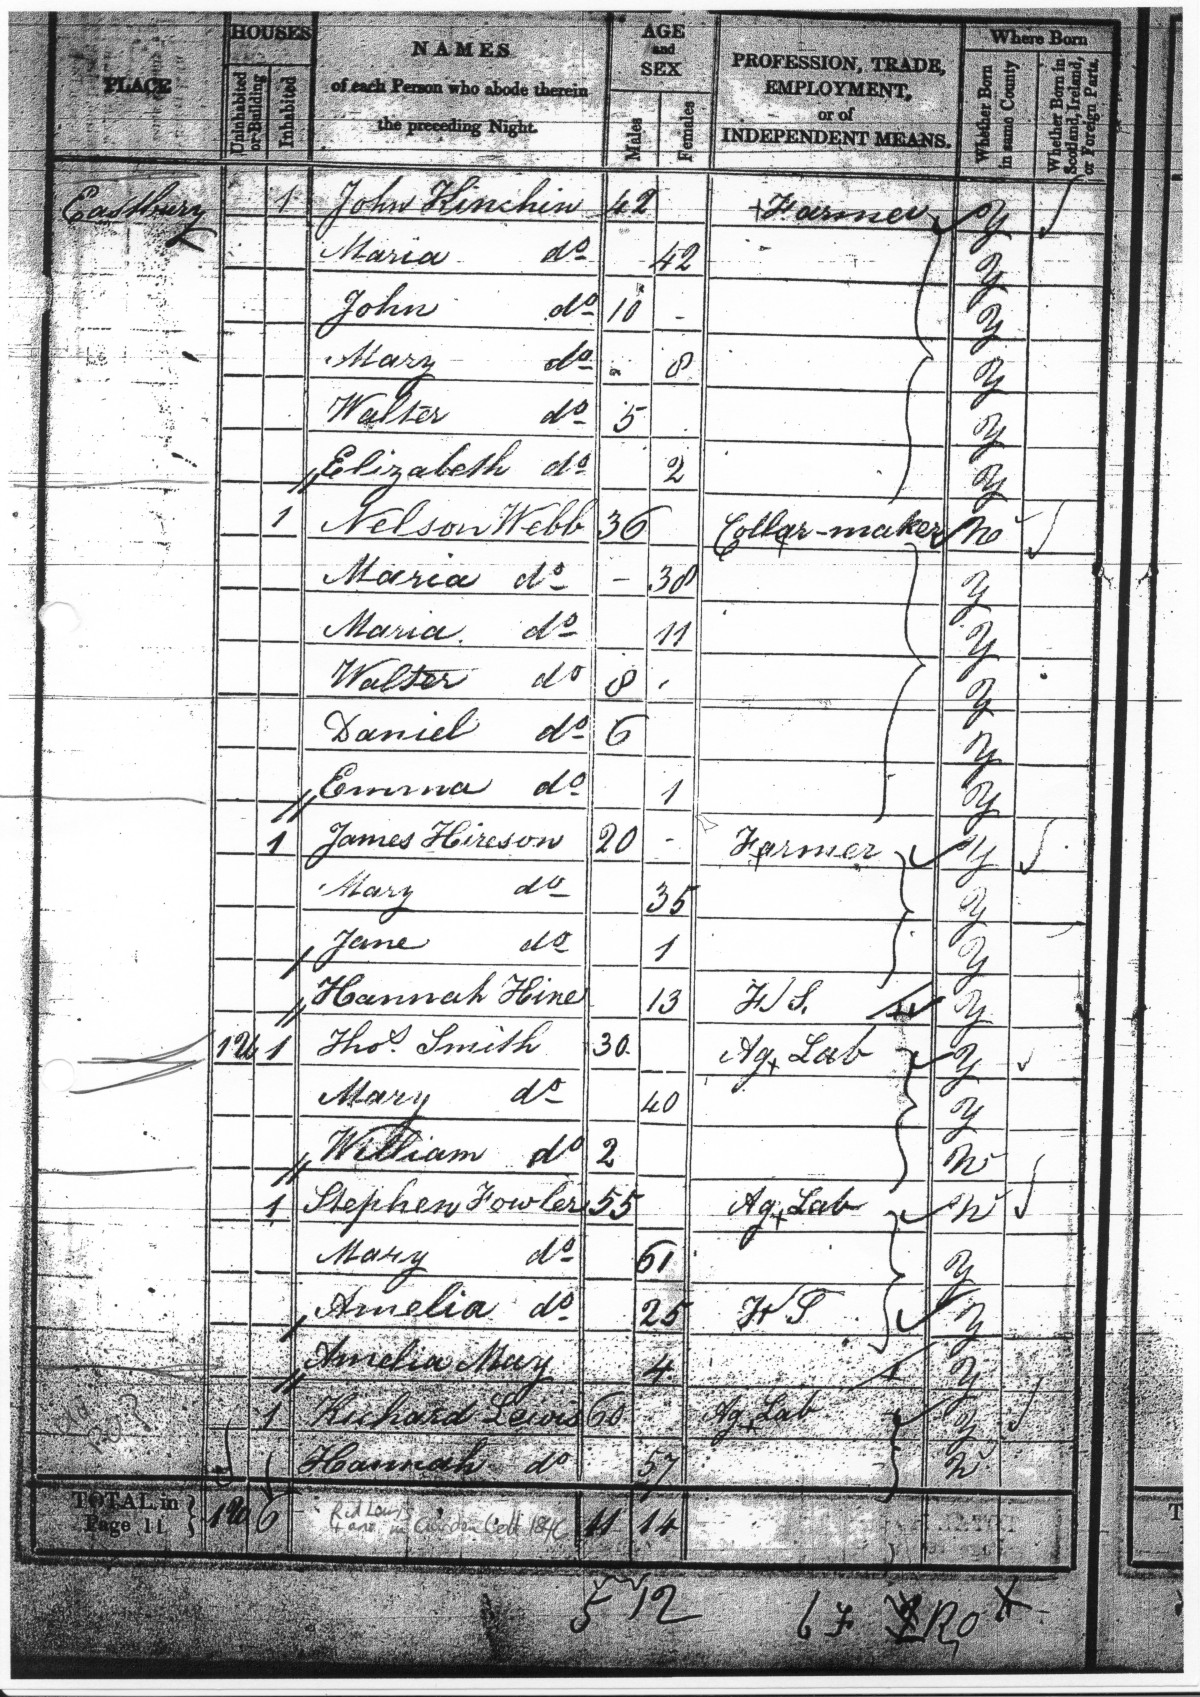 PLACE HOUSES Uninhabited or Building Inhabited NAMES of each Person who abode therein the preceding Night. AGE and SEX Males Females PROFESSION, TRADE, EMPLOYMENT, or of INDEPENDENT MEANS. Where Born Whether Born in same County Whether Born in Scotland, Ireland, or Foreign Parts.
Eastbury 1 John Kinchin 42 Farmer Y
Maria do 42 Y
John do 10 - Y
Mary do 8 Y
Walter do 5 Y
Elizabeth do 2 Y
1 Nelson Webb 36 Collar-maker N
Maria do - 38 Y
Maria do 11 Y
Walter do 8 Y
Daniel do 6 Y
Emma do 1 Y
1 James Hireson 20 - Farmer Y
Mary do 35 Y
Jane do 1 Y
Hannah Hine 13 F S. Y
1 U 1 Thos. Smith 30 Ag Lab Y
Mary do 40 Y
William do 2 N
1 Stephen Fowler 55 Ag Lab N
Mary do 61 Y
Amelia do 25 F S Y
Amelia May 4 Y
1 Richard Lewis 60 Ag Lab Y
Hannah do 57 N
TOTAL in Page 11 } 1 U 6 11 14
5 12 6 F